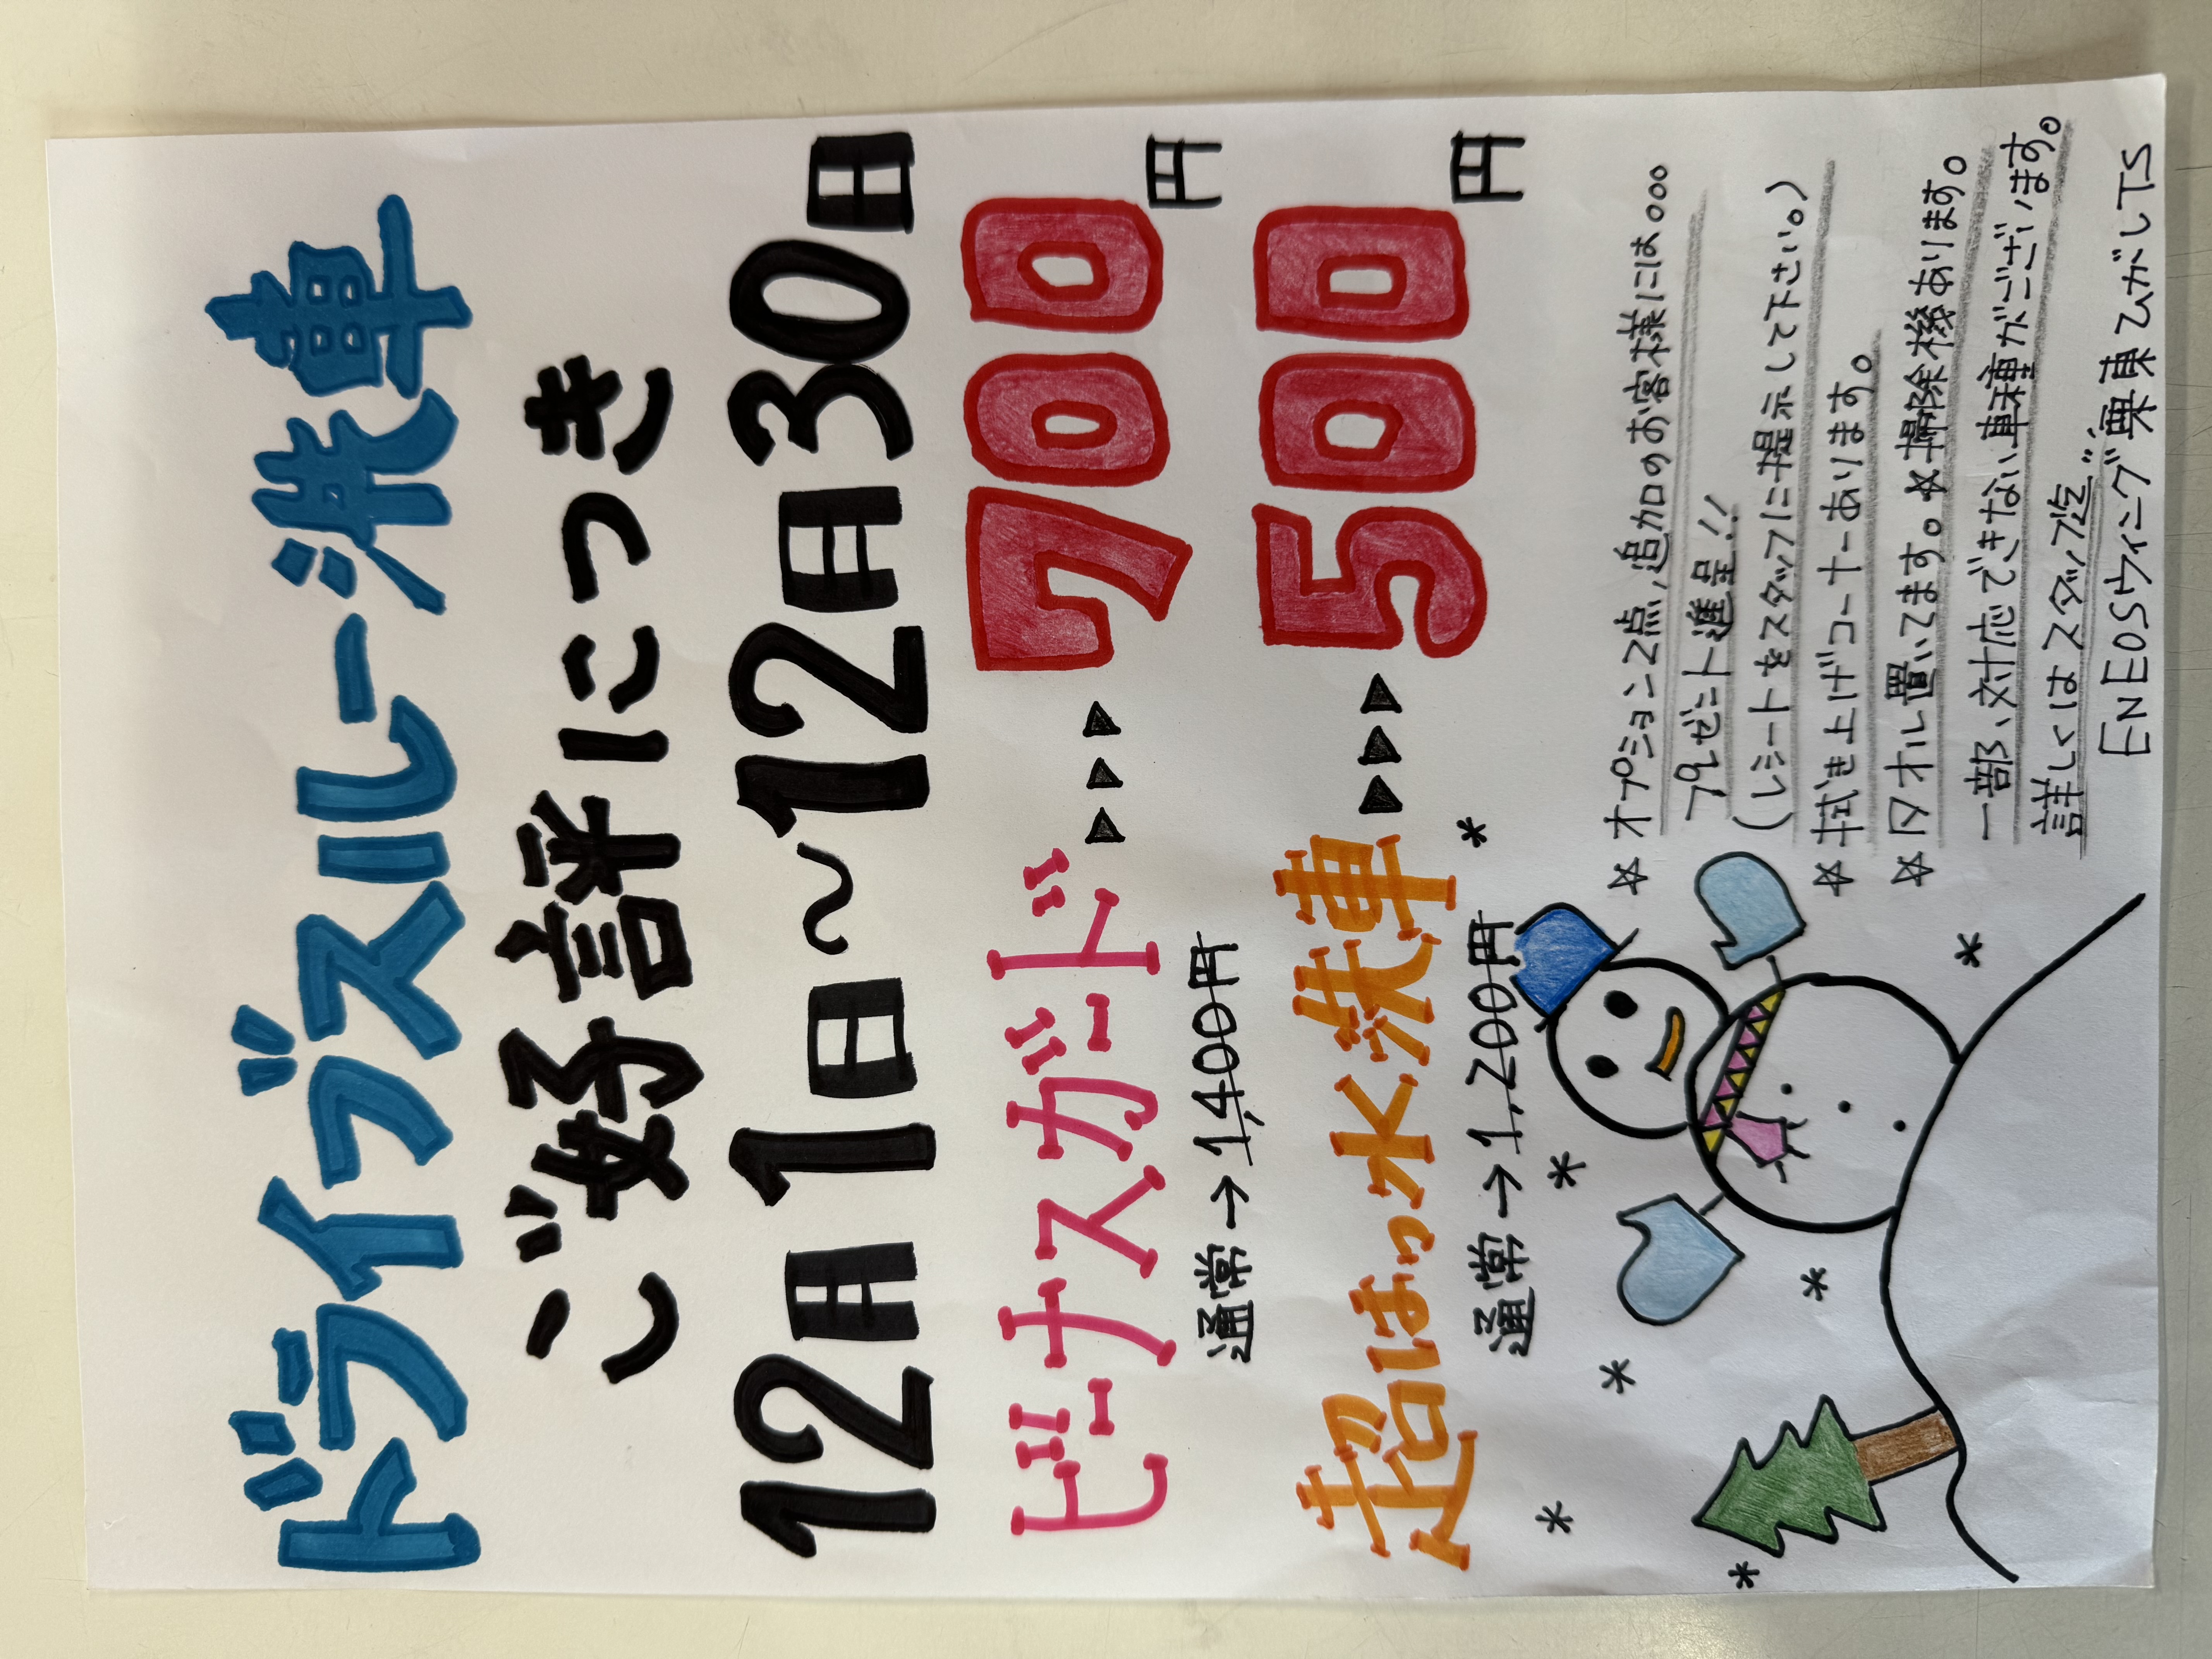 ドライブスルー洗車
ご好評につき
12月1日～12月30日
ビーナスガード ▶▶▶ 700円
通常→1,400円
超はっ水洗車 ▶▶▶ 500円
通常→1,200円
☆オプション2点,追加のお客様には...
プレゼント進呈!!
(レシートをスタッフに提示して下さい。)
☆拭き上げコーナーあります。
☆タオル置いてます。☆掃除機あります。
一部、対応できない車種がございます。
詳しくはスタッフ迄"
ENEOSウィング 栗東ひがしTS